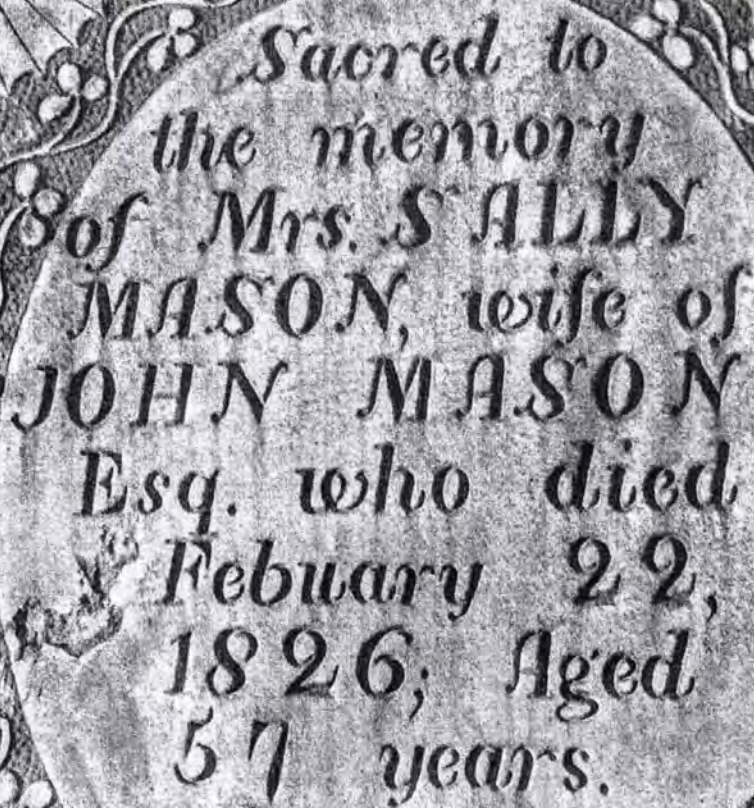 Sacred to
the memory
of Mrs. SALLY
MASON, wife of
JOHN MASON
Esq. who died
Febuary 22,
1826; Aged
57 years.